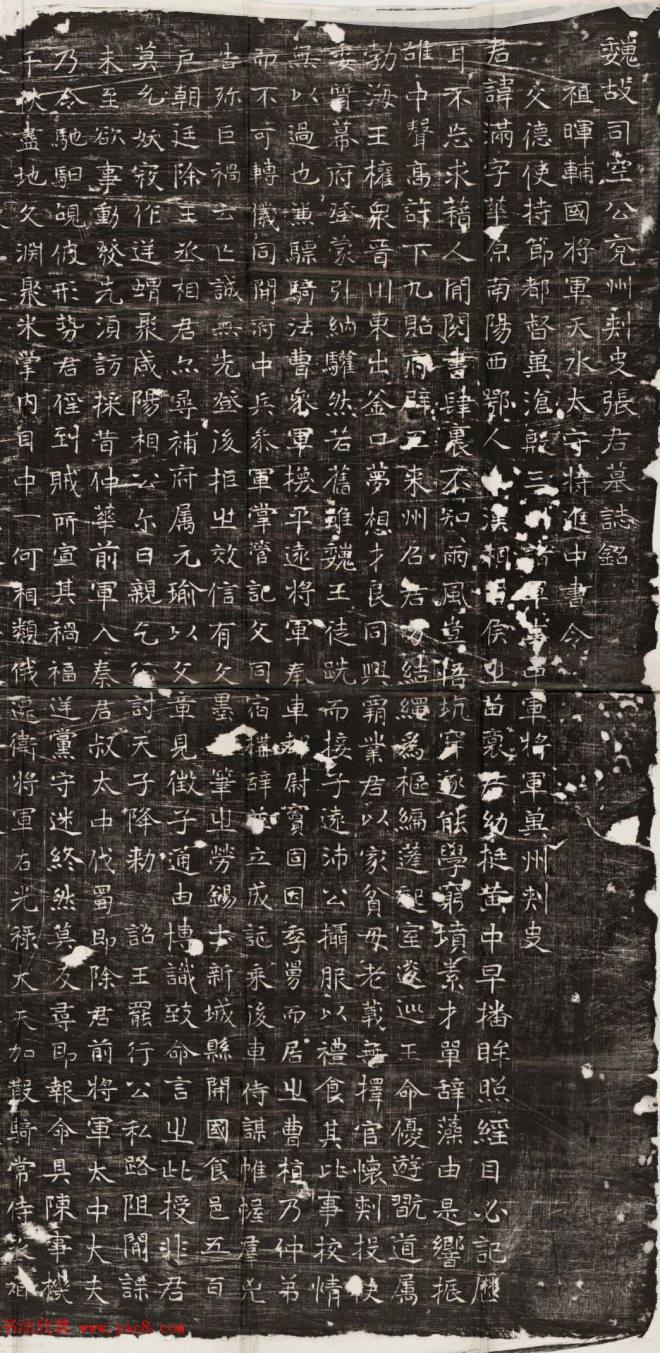 魏故司空公兖州刾史張君墓誌銘
祖暉輔國將軍天水太守特進中書令
父德使持節都督冀滄殷三州諸軍事中軍將軍冀州刾史
君諱滿字華原南陽西鄂人漢相侯㞢苗裔君幼挺黄中早播眸照經目必記歷
耳不忘求藉人間閱書肆裏不知雨風豈悟坑穽遂能學窮墳素才單辭藻由是響振
雄中聲高許下九貽府辟三來州召君結繩為樞編蓬起室逡巡王命優遊翫道属
勃海王擁衆晉川東出釜口夢想才良同興霸業君以家貧母老義無擇官懷刾投袂
委質幕府登蒙引納驩然若舊雖魏王徒跣而接子遠沛公攝服以禮食其比事校情
無以過也兼驃騎法曹叅軍機平遠將軍奉車都尉竇固因季㬅而居㞢曹植乃仲弟
而不可轉儀同開府中兵叅軍掌管記父同宿構辭並立成託乘後車侍謀帷幄羣兇
告弥巨禍云亡誠無先登後拒㞢效信有父墨筆㞢勞錫士新城縣開國食邑五百
戶朝廷除王丞相君尒尋補府属元瑜以父章見徵子通由博識致命言㞢此授非君
莫允妖寇作逆蝟聚咸陽相公尒日親乞行討天子降勅詔王罷行公私路阻間諜
未至欲事動發先須訪採昔仲華前軍入秦君叔太中伐蜀即除君前將軍太中大夫
乃令馳馹覘彼形勢君徑到賊所宣其禍福逆黨守迷終然莫反尋即報命具陳事機
千状盡地久渊聚米掌内目中一何相類俄遷衛將軍右光禄大夫加散騎常侍
书法欣赏 www.yac8.com